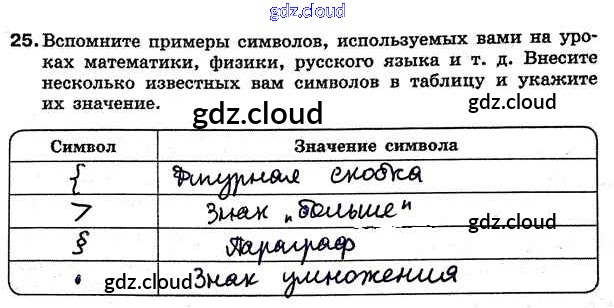 gdz.cloud
25. Вспомните примеры символов, используемых вами на уро-
ках математики, физики, русского языка и т. д. Внесите
несколько известных вам символов в таблицу и укажите
их значение.
gdz.cloud gdz.cloud
Символ Значение символа
{ Фигурная скобка
> Знак „больше"
gdz.cloud
§ Параграф
· Знак умножения
gdz.cloud gdz.cloud